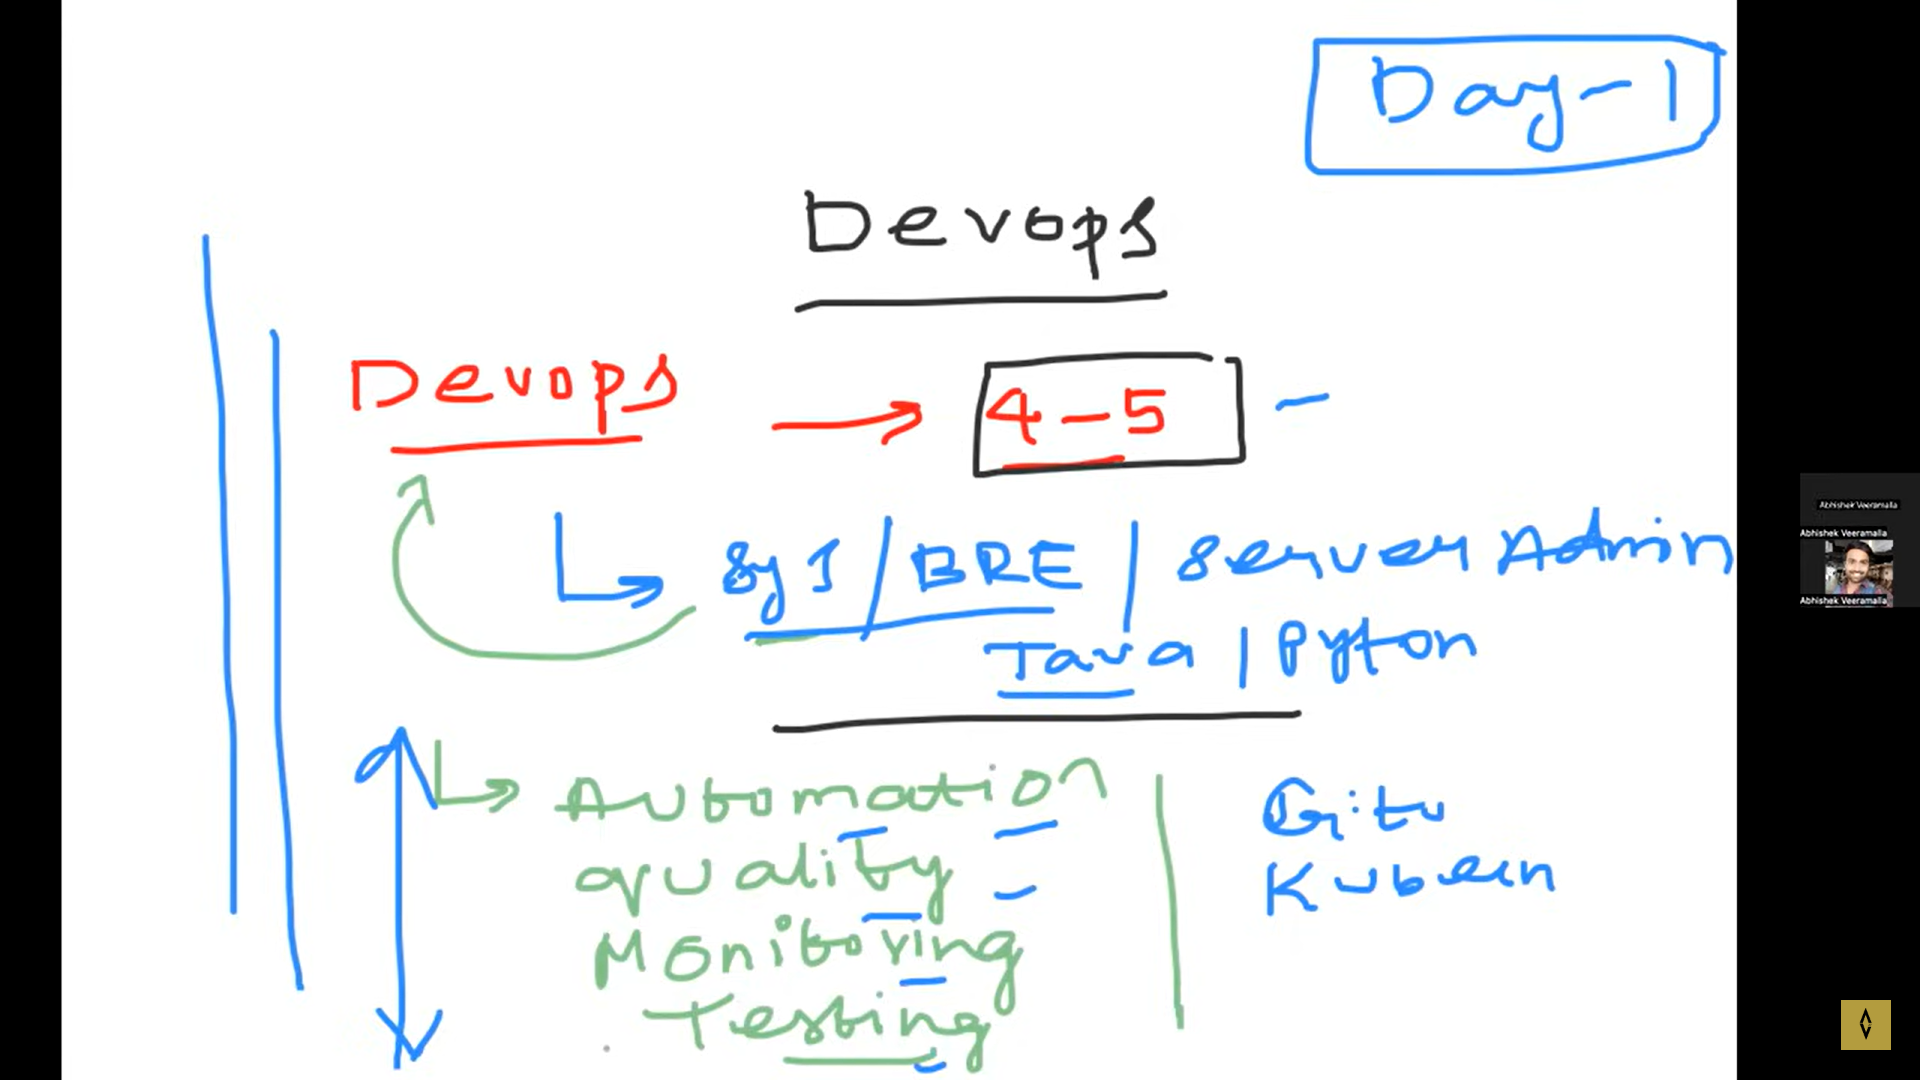 Day-1
Devops
Devops → 4-5 -
Sys / BRE | Server Admin
Java | Pyton
Automation
Quality
Monitoring
Testing
Kubern
Abhishek Veeramalla
Abhishek Veeramalla
Abhishek Veeramalla